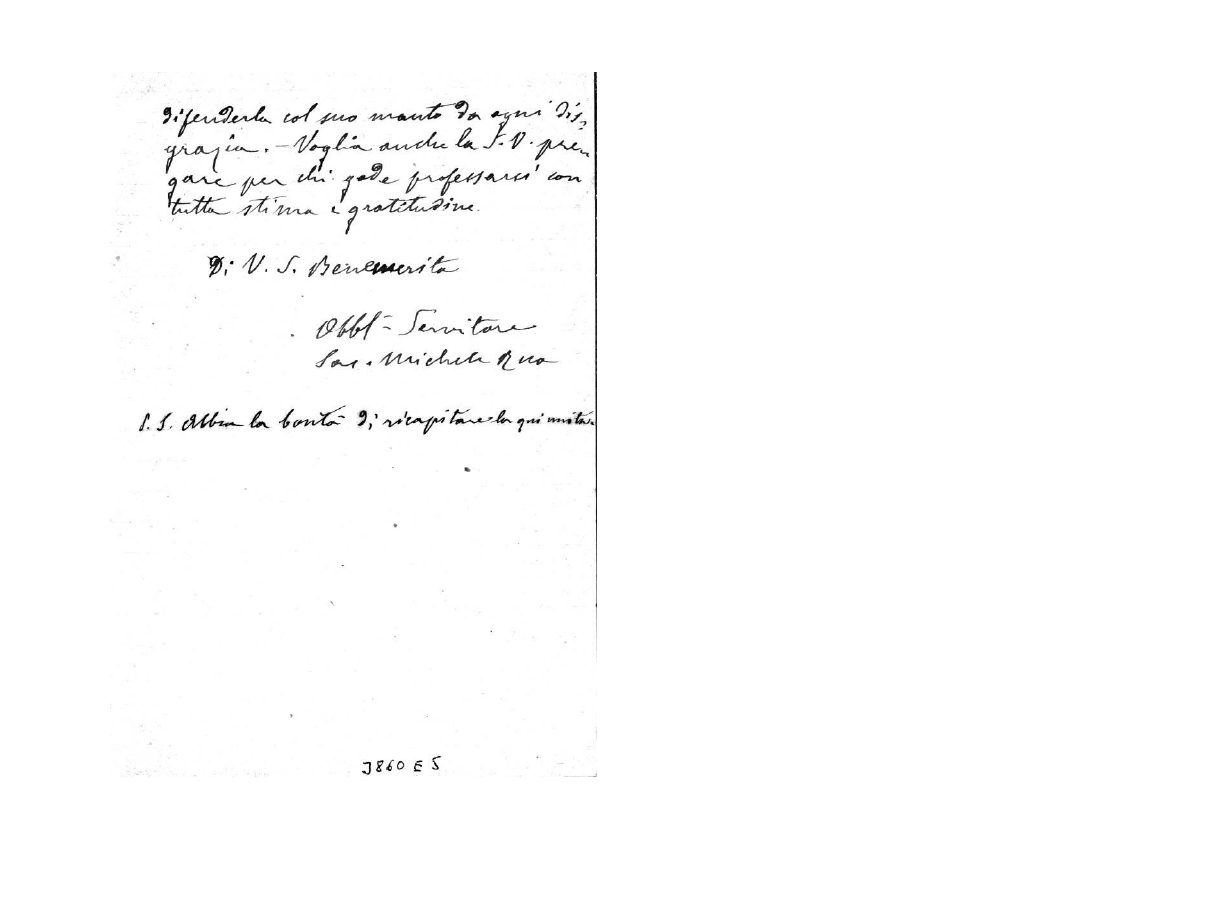 difenderla col suo manto da ogni dis-
grazia. - Voglia anche la S. V. pre-
gare per chi gode professarsi con
tutta stima e gratitudine.
Di V. S. Benemerita
Obbl- Servitore
Sac. Michele Rua
P. S. Abbia la bontà di ricapitare la qui unita.
J860 E 5